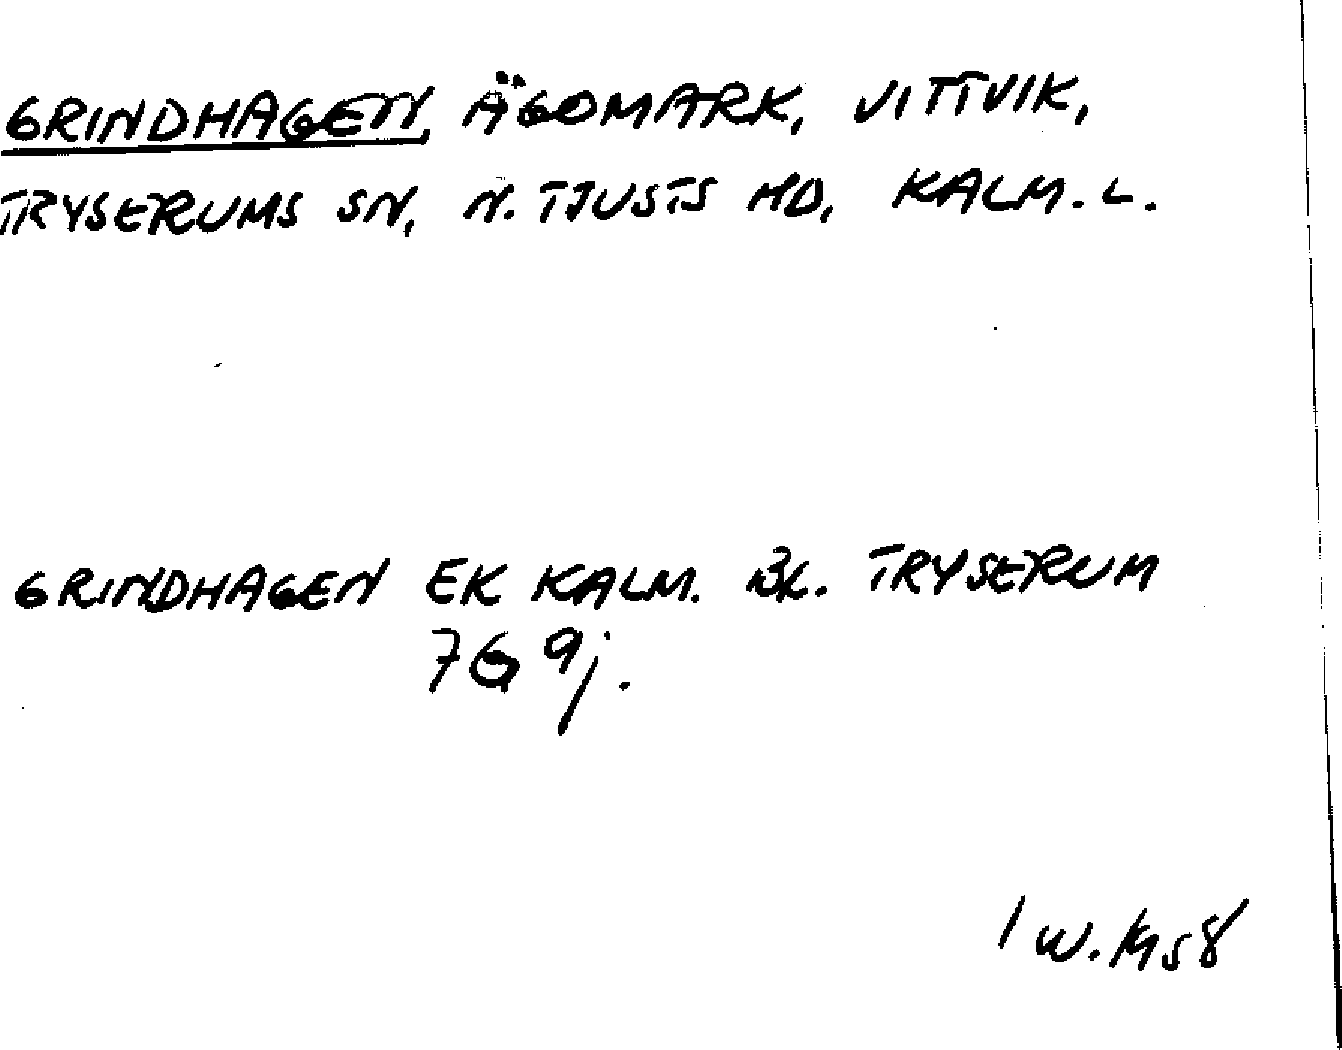 GRINDHAGEN, ÄGOMARK, VITTVIK,
TRYSERUMS SN, N. TJUSTS HD, KALM. L.
GRINDHAGEN EK KALM. BL. TRYSERUM
7G 9j.
I W. 1958